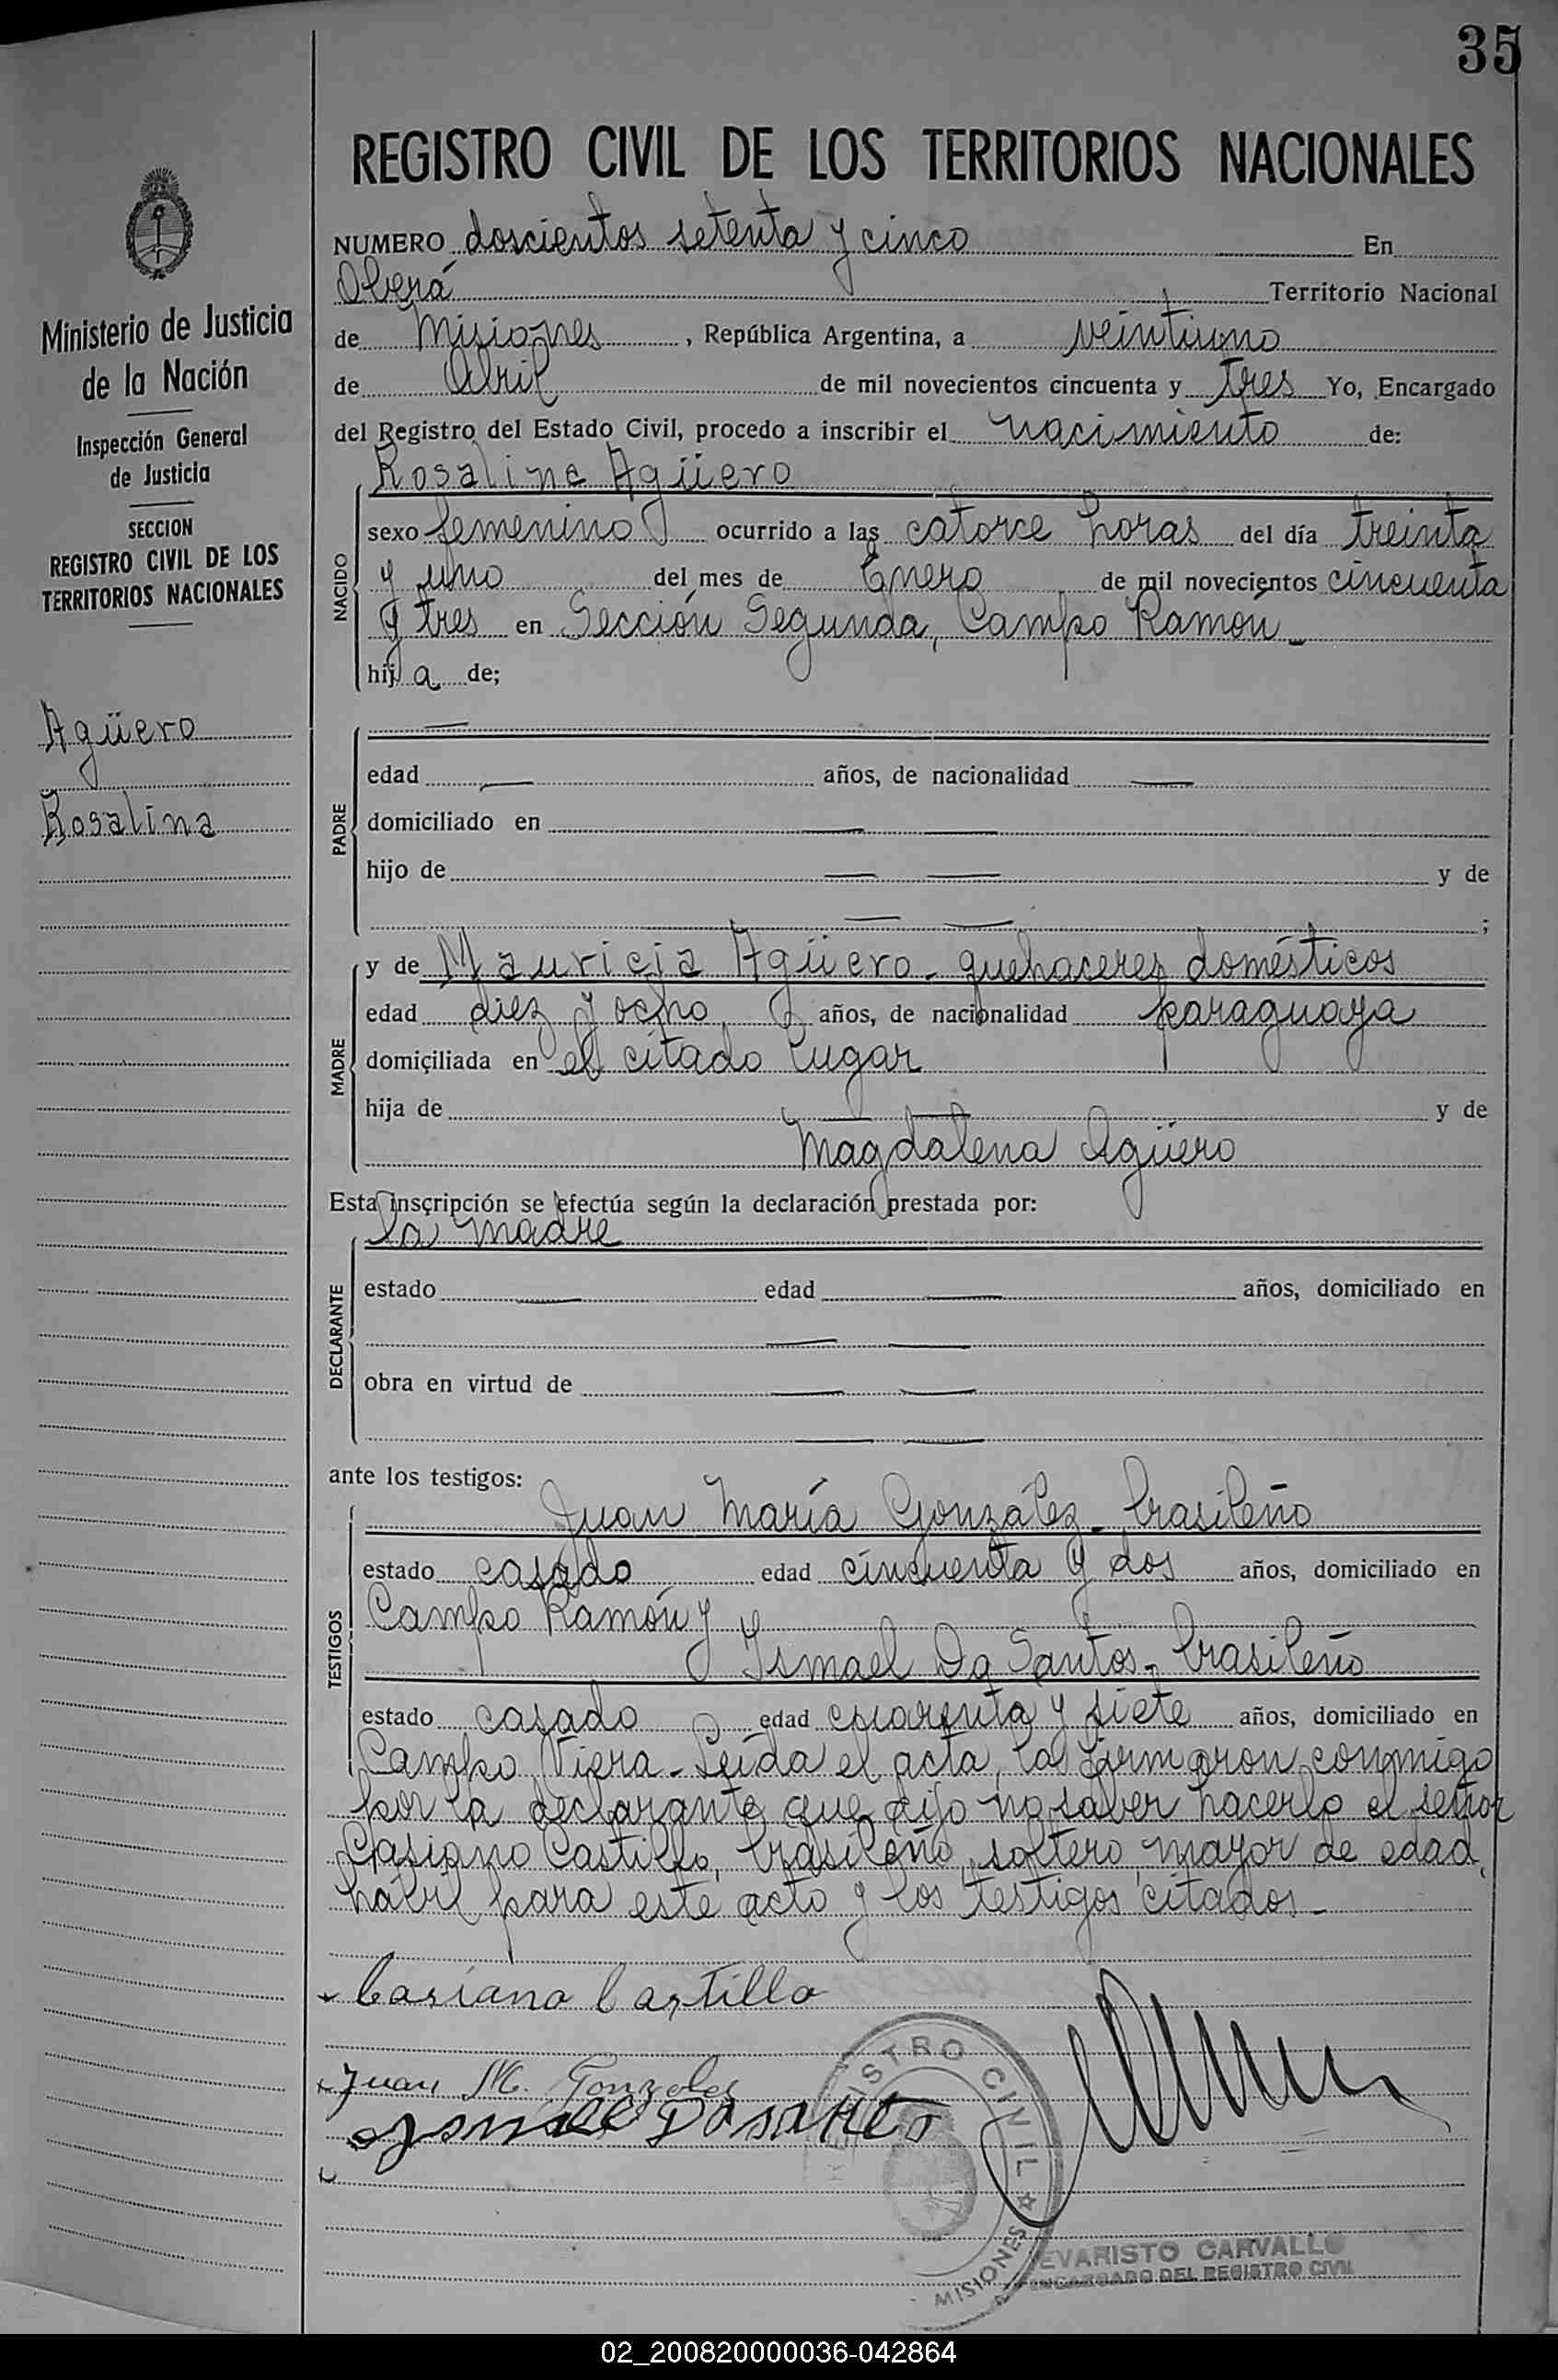 35
REGISTRO CIVIL DE LOS TERRITORIOS NACIONALES
Ministerio de Justicia
de la Nación
Inspección General
de Justicia
SECCION
REGISTRO CIVIL DE LOS
TERRITORIOS NACIONALES
Agüero
Rosalina
NUMERO doscientos setenta y cinco En
Oberá Territorio Nacional
de Misiones, República Argentina, a veintiuno
de Abril de mil novecientos cincuenta y tres Yo, Encargado
del Registro del Estado Civil, procedo a inscribir el nacimiento de:
Rosalina Agüero
NACIDO
sexo femenino ocurrido a las catorce horas del día treinta
y uno del mes de Enero de mil novecientos cincuenta
y tres en Sección Segunda, Campo Ramón_
hija de;
PADRE
edad — años, de nacionalidad —
domiciliado en — —
hijo de — — y de
— — ;
MADRE
y de Mauricia Agüero_ quehaceres domésticos
edad diez y ocho años, de nacionalidad paraguaya
domiciliada en el citado lugar
hija de — — y de
Magdalena Agüero
Esta inscripción se efectúa según la declaración prestada por:
la madre
DECLARANTE
estado — edad — años, domiciliado en
— —
obra en virtud de — —
— —
ante los testigos:
TESTIGOS
Juan María González_ brasileño
estado casado edad cincuenta y dos años, domiciliado en
Campo Ramón y
Ismael Da Santos_ brasileño
estado casado edad cuarenta y siete años, domiciliado en
Campo Viera_ Leída el acta, la firmaron conmigo
por la declarante que dijo no saber hacerlo el señor
Casiano Castillo, brasileño, soltero, mayor de edad,
hábil para este acto y los testigos citados_
Casiano Castillo
Juan M. Gonzalez
Ismael Dosantos
REGISTRO CIVIL
MISIONES
EVARISTO CARVALLO
ENCARGADO DEL REGISTRO CIVIL
02_200820000036-042864